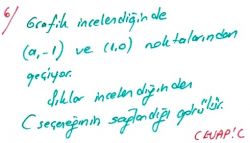 6/
Grafik incelendiğinde
(a,-1) ve (1,0) noktalarından
geçiyor.
Şıklar incelendiğinden
C seçeneğinin sağlandığı görülür.
CEVAP: C